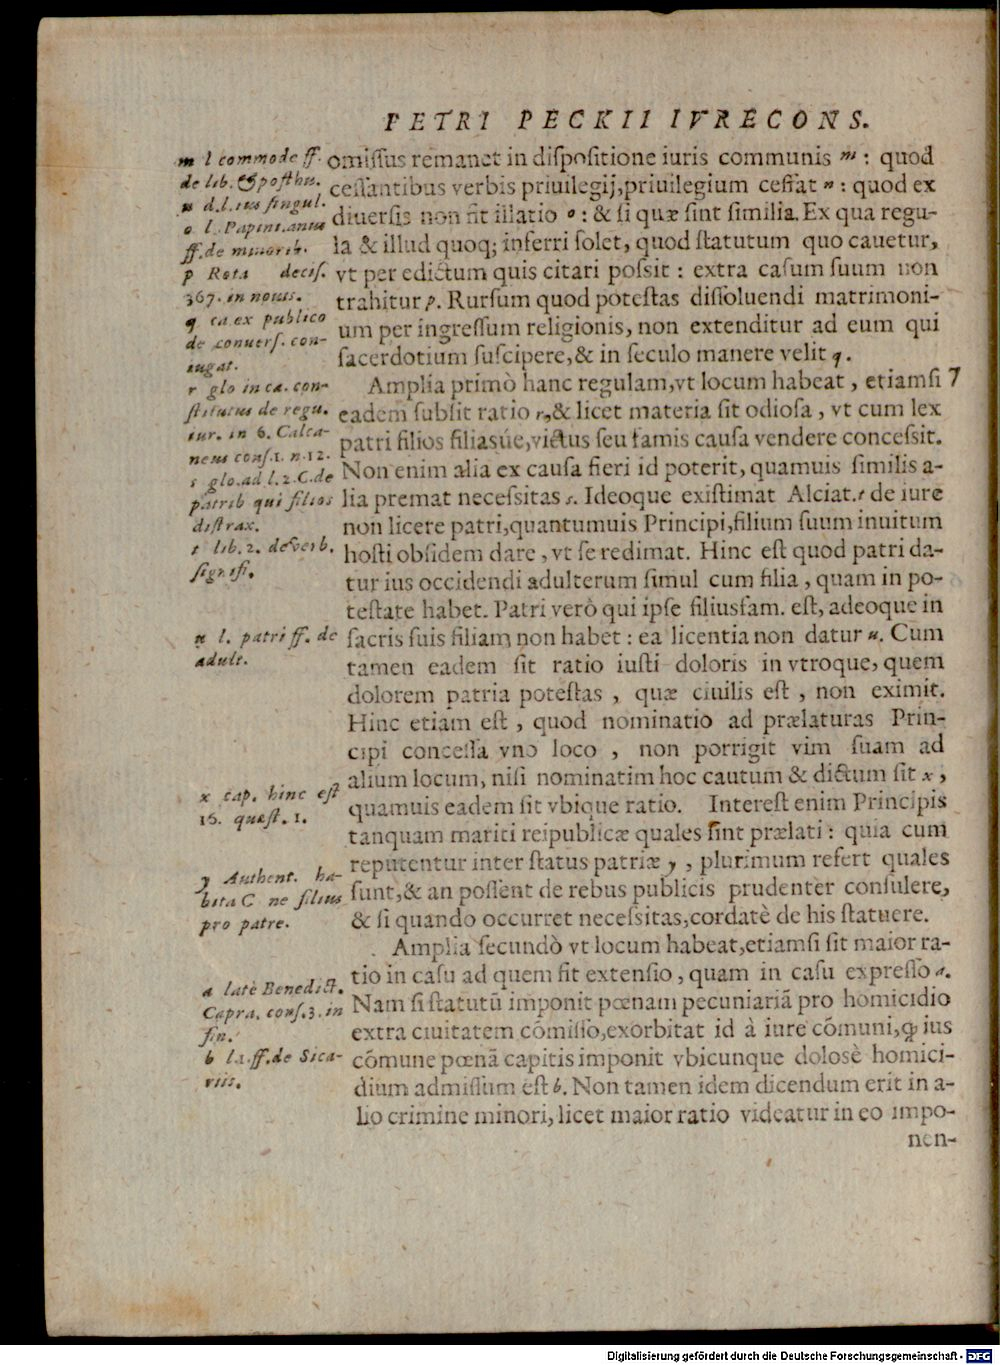 PETRI PECKII IVRECONS.
omiſſus remanet in diſpoſitione iuris communis m : quod
ceſſantibus verbis priuilegij, priuilegium ceſſat n : quod ex
diuerſis non fit illatio o : & ſi quæ ſint ſimilia. Ex qua regu-
la & illud quoq; inferri ſolet, quod ſtatutum quo cauetur,
vt per edictum quis citari poſsit : extra caſum ſuum non
trahitur p. Rurſum quod poteſtas diſſoluendi matrimoni-
um per ingreſſum religionis, non extenditur ad eum qui
ſacerdotium ſuſcipere, & in ſeculo manere velit q.
Amplia primò hanc regulam, vt locum habeat, etiamſi 7
eadem ſubſit ratio r, & licet materia ſit odioſa, vt cum lex
patri filios filiasúe, victus ſeu famis cauſa vendere conceſsit.
Non enim alia ex cauſa fieri id poterit, quamuis ſimilis a-
lia premat neceſsitas s. Ideoque exiſtimat Alciat. t de iure
non licere patri, quantumuis Principi, filium ſuum inuitum
hoſti obſidem dare, vt ſe redimat. Hinc eſt quod patri da-
tur ius occidendi adulterum ſimul cum filia, quam in po-
teſtate habet. Patri verò qui ipſe filiusfam. eſt, adeoque in
ſacris ſuis filiam non habet : ea licentia non datur u. Cum
tamen eadem ſit ratio iuſti doloris in vtroque, quem
dolorem patria poteſtas, quæ ciuilis eſt, non eximit.
Hinc etiam eſt, quod nominatio ad prælaturas Prin-
cipi conceſſa vno loco, non porrigit vim ſuam ad
alium locum, niſi nominatim hoc cautum & dictum ſit x,
quamuis eadem ſit vbique ratio. Intereſt enim Principis
tanquam mariti reipublicæ quales ſint prælati : quia cum
reputentur inter ſtatus patriæ y, plurimum refert quales
ſunt, & an poſſent de rebus publicis prudenter conſulere,
& ſi quando occurret neceſsitas, cordatè de his ſtatuere.
Amplia ſecundò vt locum habeat, etiamſi ſit maior ra-
tio in caſu ad quem fit extenſio, quam in caſu expreſſo a.
Nam ſi ſtatutũ imponit pœnam pecuniariã pro homicidio
extra ciuitatem cõmiſſo, exorbitat id à iure cõmuni, ꝙ ius
cõmune pœnã capitis imponit vbicunque doloſè homici-
dium admiſſum eſt b. Non tamen idem dicendum erit in a-
lio crimine minori, licet maior ratio videatur in eo impo-
nen-
m l commode ff.
de lib. & poſthu.
n d.l. ius ſingul.
o l. Papini. anus
ff. de minorib.
p Rota deciſ.
367. in nouis.
q ca ex publico
de conuerſ. con-
iugat.
r glo in ca. con-
ſtitutus de regu.
iur. in 6. Calca-
neus conſ. 1. n. 12.
s glo. ad l. 2. C. de
patrib qui filios
diſtrax.
t lib. 2. de verb.
ſignifi.
u l. patri ff. de
adult.
x cap. hinc eſt
16. quæſt. 1.
y Authent. ha-
bita C ne filius
pro patre.
a latè Benedict.
Capra. conſ. 3. in
fin.
b l.1. ff. de Sica-
riis.
Digitalisierung gefördert durch die Deutsche Forschungsgemeinschaft - DFG